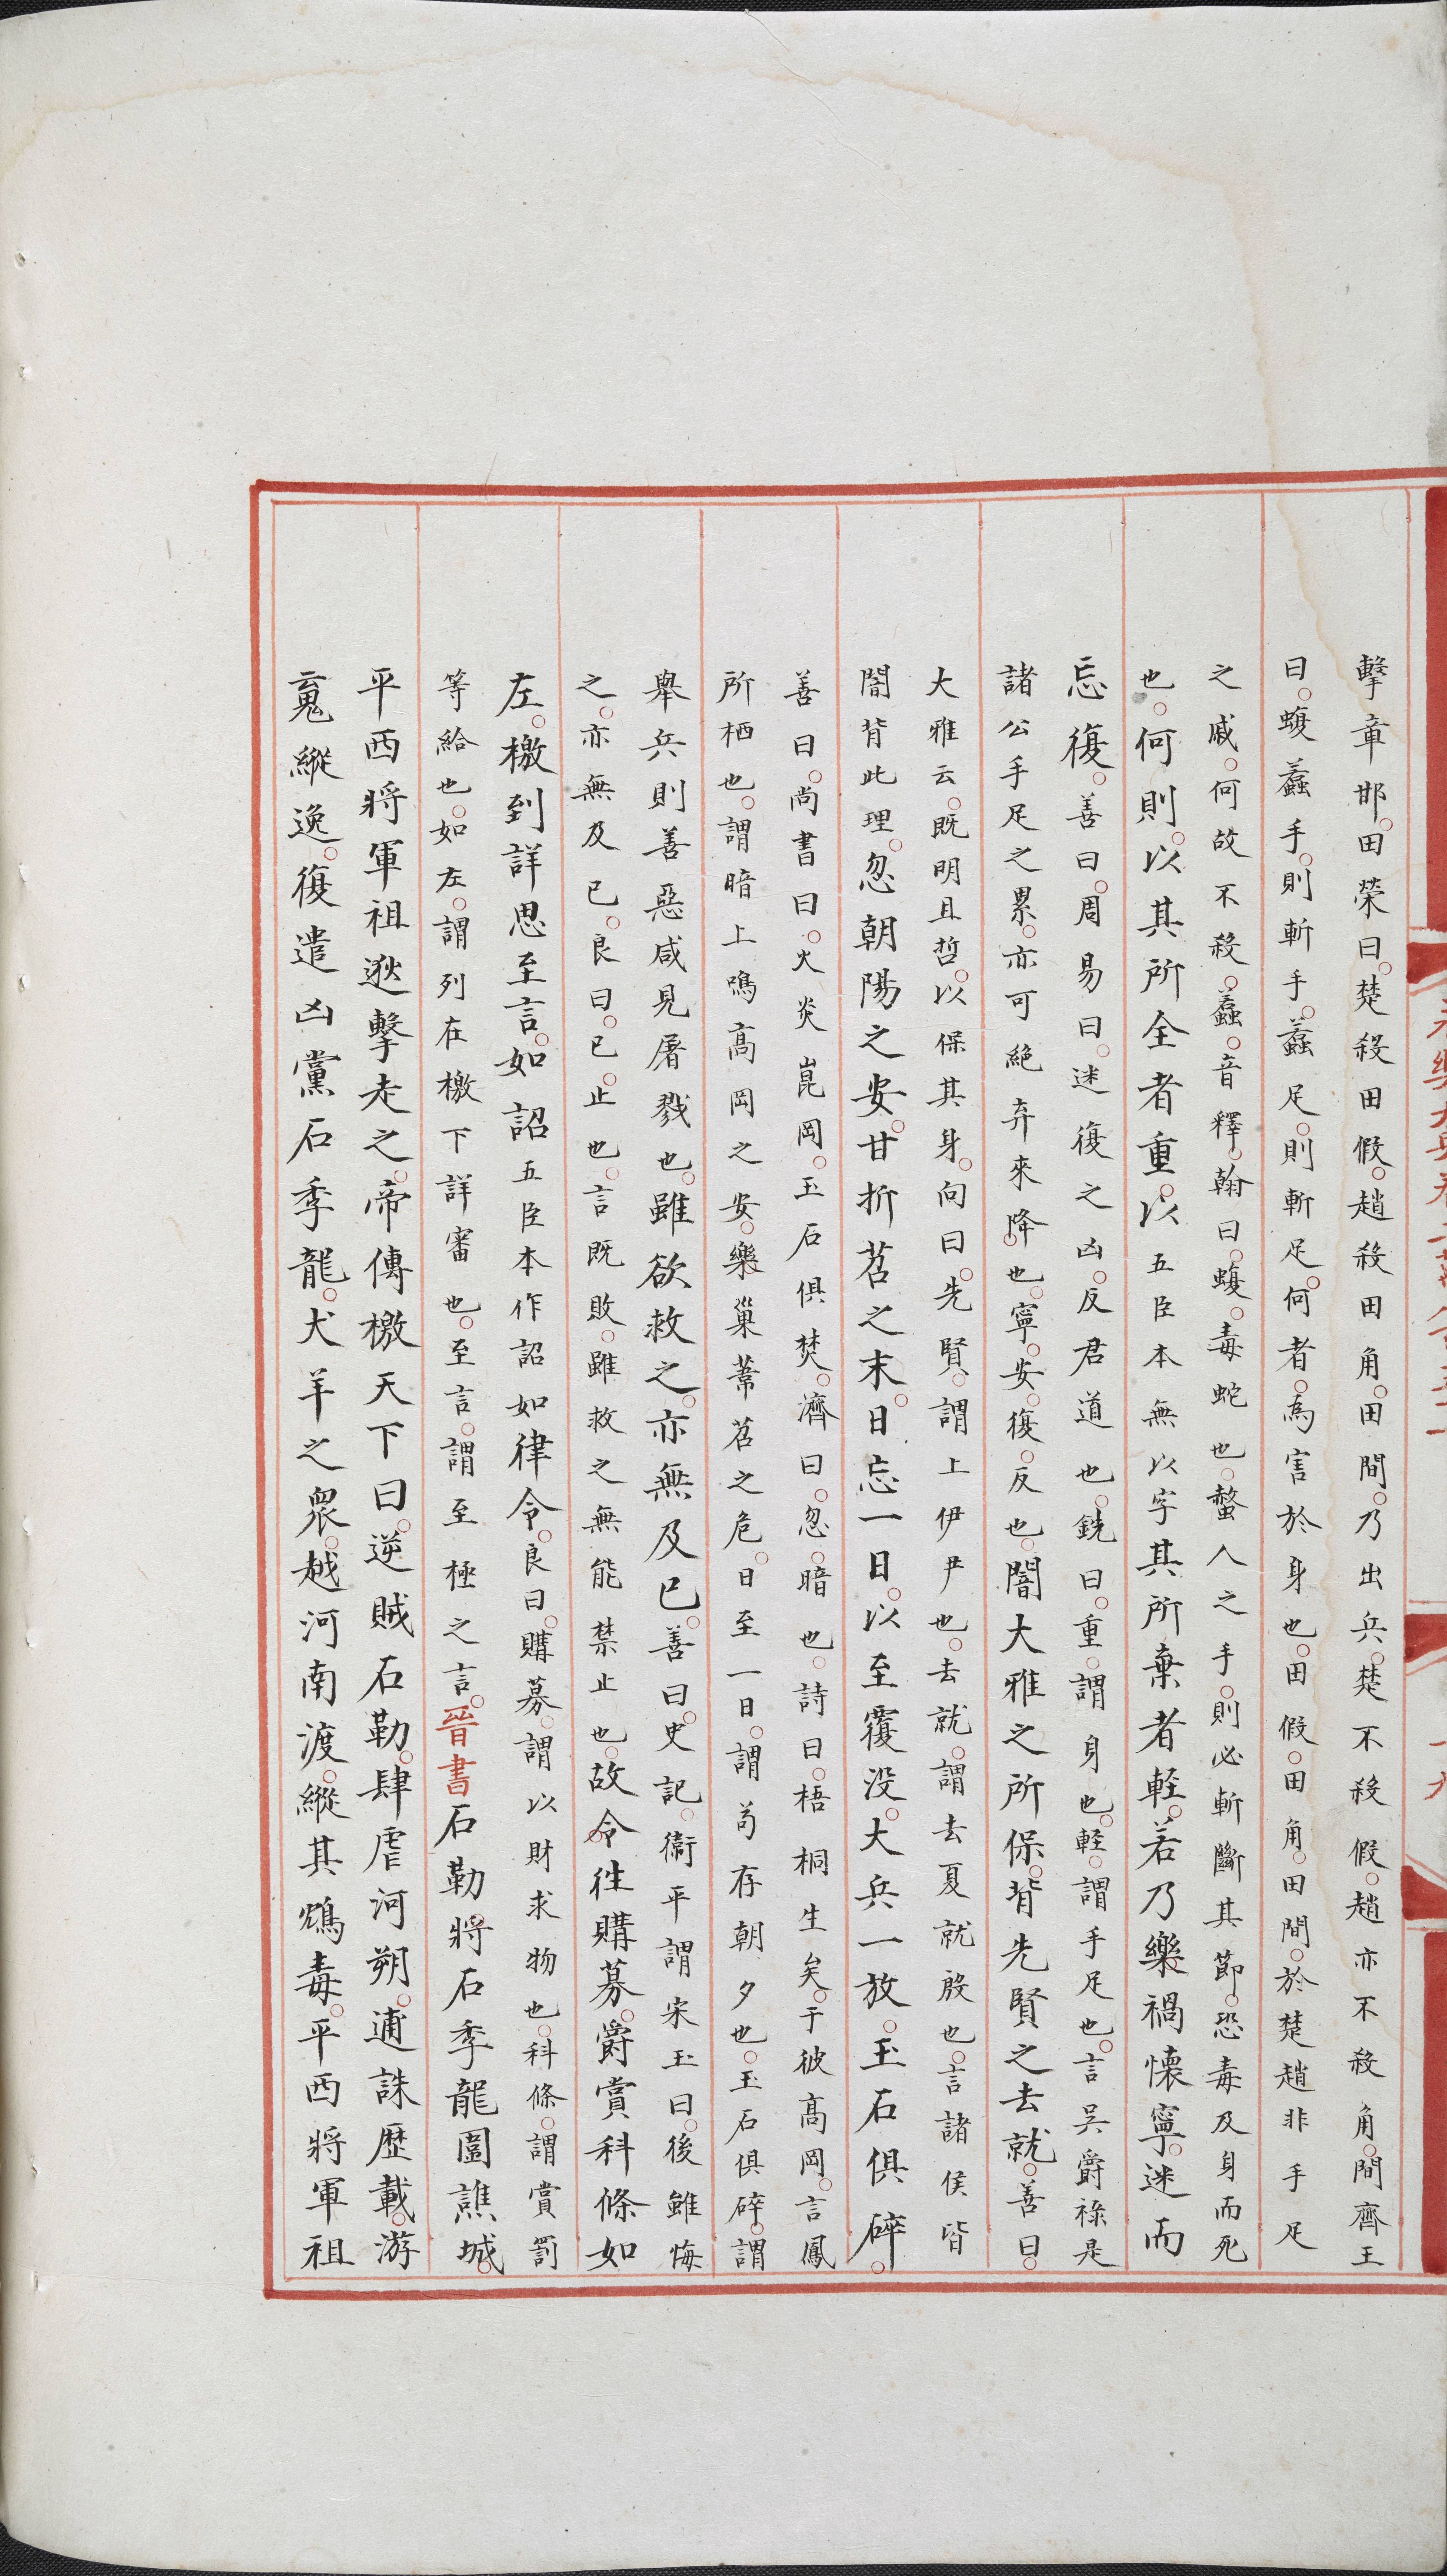 擊章邯田榮曰楚殺田假趙殺田角田間乃出兵楚不殺假趙亦不殺角間齊王
曰蝮蠚手則斬手蠚足則斬足何者為害於身也田假田角田間於楚趙非手足
之戚何故不殺蠚音釋翰曰蝮毒蛇也螫人之手則必斬斷其節恐毒及身而死
也何則以其所全者重以五臣本無以字其所棄者輕若乃樂禍懷寧迷而
忘復善曰周易曰迷復之凶反君道也銑曰重謂身也輕謂手足也言吳爵祿是
諸公手足之累亦可絕弃來降也寧安復反也闇大雅之所保背先賢之去就善曰
大雅云既明且哲以保其身向曰先賢謂上伊尹也去就謂去夏就殷也言諸侯皆
闇背此理忽朝陽之安甘折苕之末日忘一日以至覆没大兵一放玉石俱碎
善曰尚書曰火炎崑岡玉石俱焚濟曰忽暗也詩曰梧桐生矣于彼高岡言鳳
所栖也謂暗上鳴高岡之安樂巢葦苕之危日至一日謂苟存朝夕也玉石俱碎謂
舉兵則善惡咸見屠戮也雖欲救之亦無及已善曰史記衞平謂宋王曰後雖悔
之亦無及已良曰已止也言既敗雖救之無能禁止也故令往購募爵賞科條如
左檄到詳思至言如詔五臣本作詔如律令良曰購募謂以財求物也科條謂賞罰
等給也如左謂列在檄下詳審也至言謂至極之言晉書石勒將石季龍圍譙城
平西將軍祖逖擊走之帝傳檄天下曰逆賊石勒肆虐河朔逋誅歷載游
䰟縱逸復遣凶黨石季龍犬羊之衆越河南渡縱其鴆毒平西將軍祖